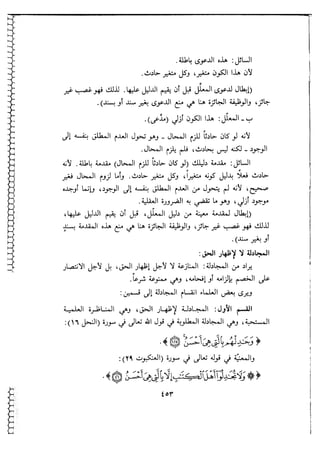 السائل: هذه الدعوى باطلة.
لأن هذا الكون متغير، وكل متغير حادث.
(إبطال لدعوى المعلّل قبل أن يقيم الدليل عليها. لذلك فهو غصب غير
جائز، والوظيفة الجائزة هنا هي منع الدعوى بغير سند أو بسند).
ب ـ المعلّل: هذا الكون أزلي (مدّعى).
لأنه لو كان حادثاً للزم المحال ـ وهو تحول العدم المطلق بنفسه إلى
الوجود ـ لكنه ليس بحادث، فلم يلزم المحال.
السائل: مقدمة دليلك (لو كان حادثاً للزم المحال) مقدمة باطلة. لأنه
حادث فعلاً بدليل كونه متغيراً، وكل متغير حادث. وأما لزوم المحال فغير
صحيح، لأنه لم يتحول من العدم المطلق بنفسه إلى الوجود، وإنما أوجده
موجود أزلي، وهو ما تقضي به الضرورة العقلية.
(إبطال لمقدمة معينة من دليل المعلّل، قبل أن يقيم الدليل عليها،
لذلك فهو غصب غير جائز، والوظيفة الجائزة هنا هي منع هذه المقدمة بسند
أو بغير سند).
المجادلة لا لإظهار الحق:
يراد من المجادلة: المنازعة لا لأجل إظهار الحق، بل لأجل الانتصار
على الخصم بإلزامه أو إفحامه، وهي ممنوعة شرعاً.
ويرى بعض العلماء انقسام المجادلة إلى قسمين:
القسم الأول: المجادلة لإظهار الحق، وهي المناظرة العلمية
المستحبة، وهي المجادلة المطلوبة في قول الله تعالى في سورة (النحل ١٦):
﴿وَجَٰدِلْهُم بِٱلَّتِى هِىَ أَحْسَنُ ۝١٢٥﴾.
والمعنيّة في قوله تعالى في سورة (العنكبوت ٢٩):
﴿۞ وَلَا تُجَٰدِلُوٓا۟ أَهْلَ ٱلْكِتَٰبِ إِلَّا بِٱلَّتِى هِىَ أَحْسَنُ ۝٤٦﴾.
٤٥٣